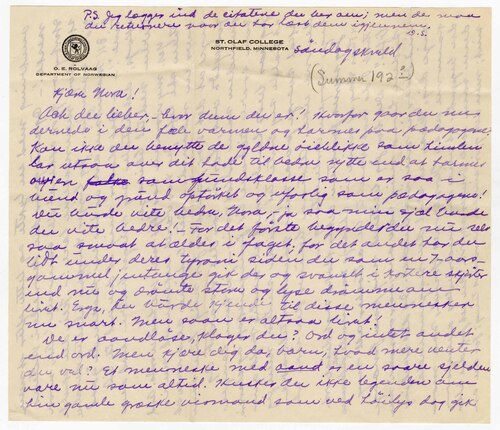 P.S. Jeg lægger ind de citatene du ber om; men de maa
du returnere naar du har læst dem igjennem.
D.S.
ST. OLAF COLLEGE
NORTHFIELD, MINNESOTA
O. E. RØLVAAG
DEPARTMENT OF NORWEGIAN
Søndagskveld
(Summer 192
Kjære Nora!
Ach du lieber, – hvor dum du er! Hvorfor gaar du nu
dernede i den fæle varmen og harmes paa pædagogene.
Kan ikke du benytte de gyldne øieblikke som himlen
lar utraa over dit hode til bedre nytte end at harmes
over en samfundsklasse som er saa i
bund og grund optørket og uforlig som pædagogene!
Du burde vite bedre, Nora, ja saa min sjæl burde
du vite bedre! – For det første begynder du nu selv
saa smaat at ældes i faget, for det andet har du
lidt under deres tyrani siden du som en 7-aars-
gammel jentunge gik der og svanset i kortere skjørter
end nu og drømte store og lyse drømme om
livet. Ergo, du burde kjende til disse mennesker
nu snart. Men saan er altsaa livet!
De er aandløse, klager du? Ord og intet andet
end ord. Men kjære dig da, barn, hvad mere venter
du vel? Et menneske med aand er en saare sjelden
vare nu som altid. Husker du ikke legenden om
hin gamle græske vismand som ved høilys dag gik